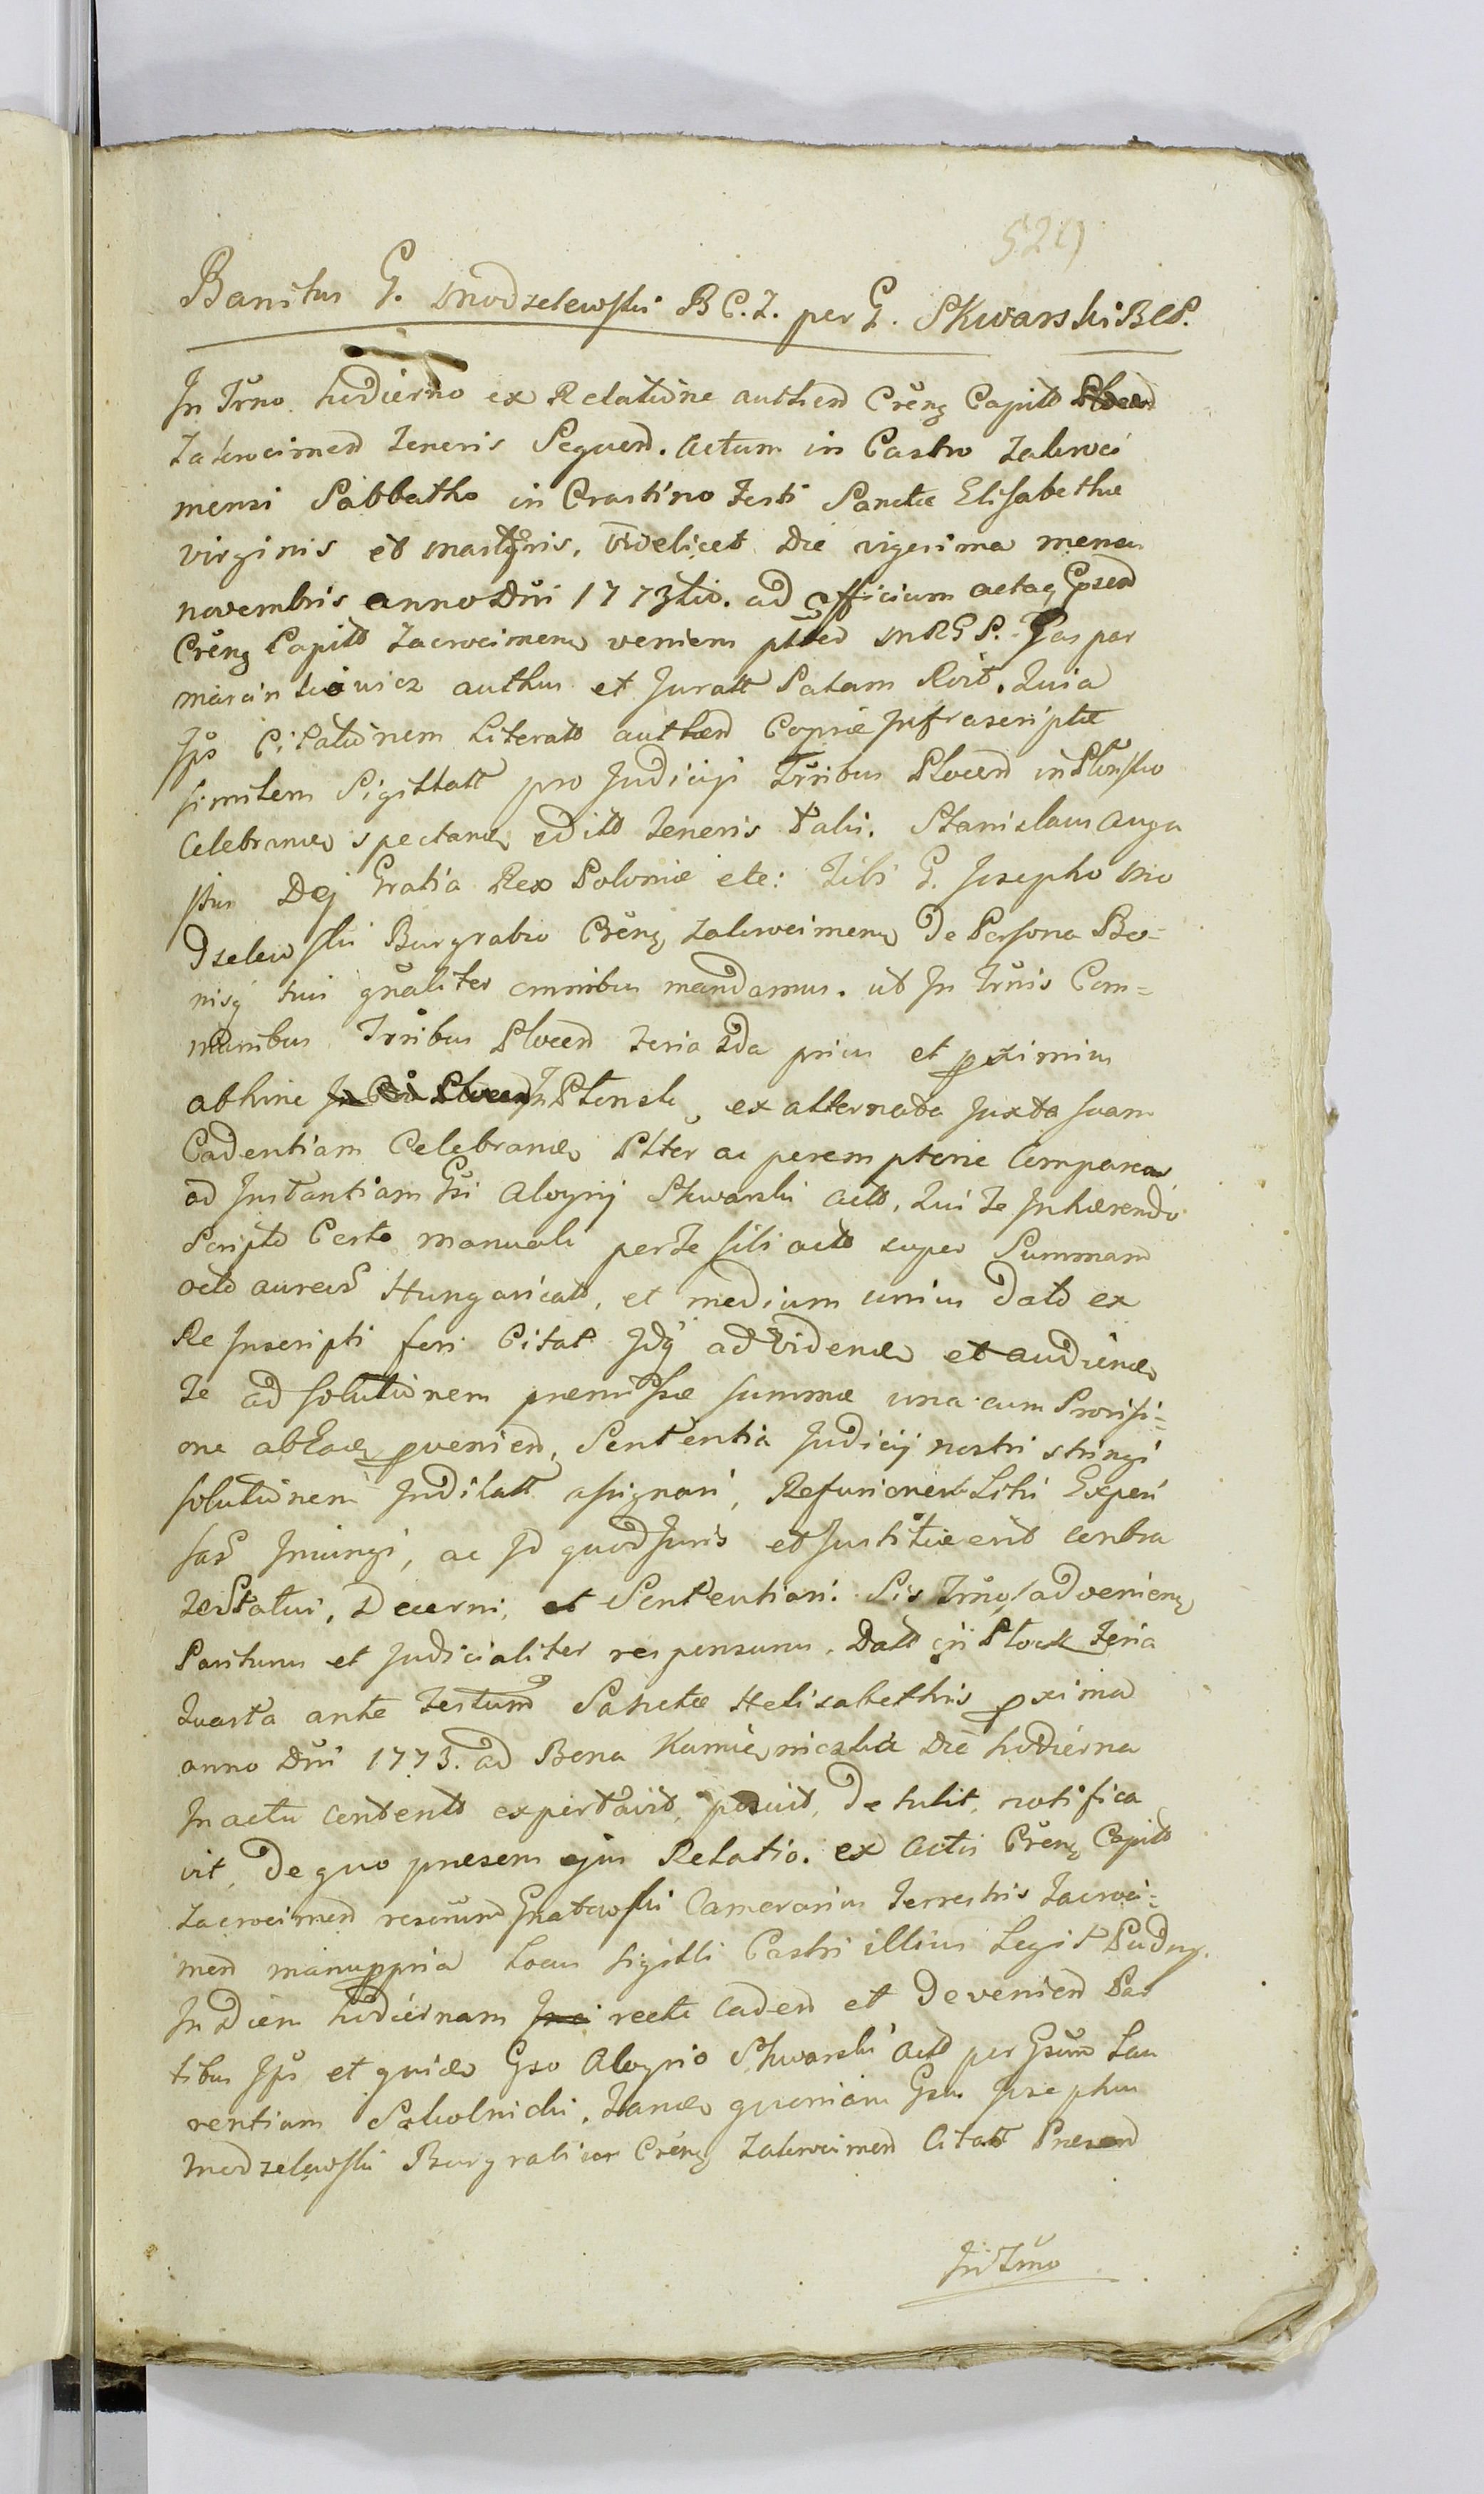 529
Banitus G. Modzelewski B C. Z. per G. Skwarski B C P.
In Trno hodierno ex Relatione authen Cren Capit
Zakrocimen Teneris Sequen. Actum in Castro Zakroci
mensi Sabbatho in Crastino Festi Sanctæ Elisabethæ
virginis et martyris, videlicet Die vigesima mensis
novembris anno Dni 1773tio. ad Officium actaq
Cren Capit Zacrocimen veniens Gaspar
Marcinkiewicz authus et Juratt Palam Roit. Quia
Jps Citationem Literatt authen Copiæ Infrascriptæ
similem Sigillatt pro Judicijs Trnibus Plocen in Płońsko
Celebran spectan edit Teneris Talis. Stanislaus Augu
stus Dej Gratia Rex Poloniæ etc: Tibi G. Josepho Mo
dzelewski Burgrabio Cren Zakrocimen De Persona Bo=
nisq tuis gnaliter omnibus mandamus. ut In Trnis Com=
munibus Trribus Plocen Feria 2da prius et proximius
abhinc In Plonsk, ex alternata Juxta suam
Cadentiam Celebran Plter ac peremptorie Compareas
ad Instantiam Gsi Aloysij Skwarski Act, Qui Te Inhærendo
Scripto Certo manuali per Te sibi act super Summam
octo aureos Hungaricales, et medium unius Dato ex
Re Inscripti fori Citat Idq ad Viden et audien
Te ad solutionem premissæ summæ una cum Provisi=
one ab provenien, Sententia Judicij nostri stringi
solutionem Indilatt assignari, Refusionem Litis Expen
sas Iniungi, ac Id quod Juris et Justitiæ erit contra
Te Statui, Decerni, et Sententiari. Sis Trno advenien
Pariturus et Judicialiter responsurus. Datt in Plock Feria
Quarta ante Festum Sanctæ Helisabethis proxima
anno Dni 1773. ad Bona Die hodierna
In actu content exportavit, posuit, Detulit, notifica
vit, De quo presens ejus Relatio. ex Actis Cren Capit
Zacrocimen Gnatowski Camerarius Terrestris Zacroci=
men manuppria Locus Sigilli Castri illius Legit
In Diem hodiernam recte caden et Devenien Par
tibus Jps et quide Gso Aloysio Skwarski Act per Gsum Lau
rentium Szkolnicki, Tande quoniam Gsus Josephus
Modzelewski Burgrabius Cren Zakrocimen Citatt
In Trno